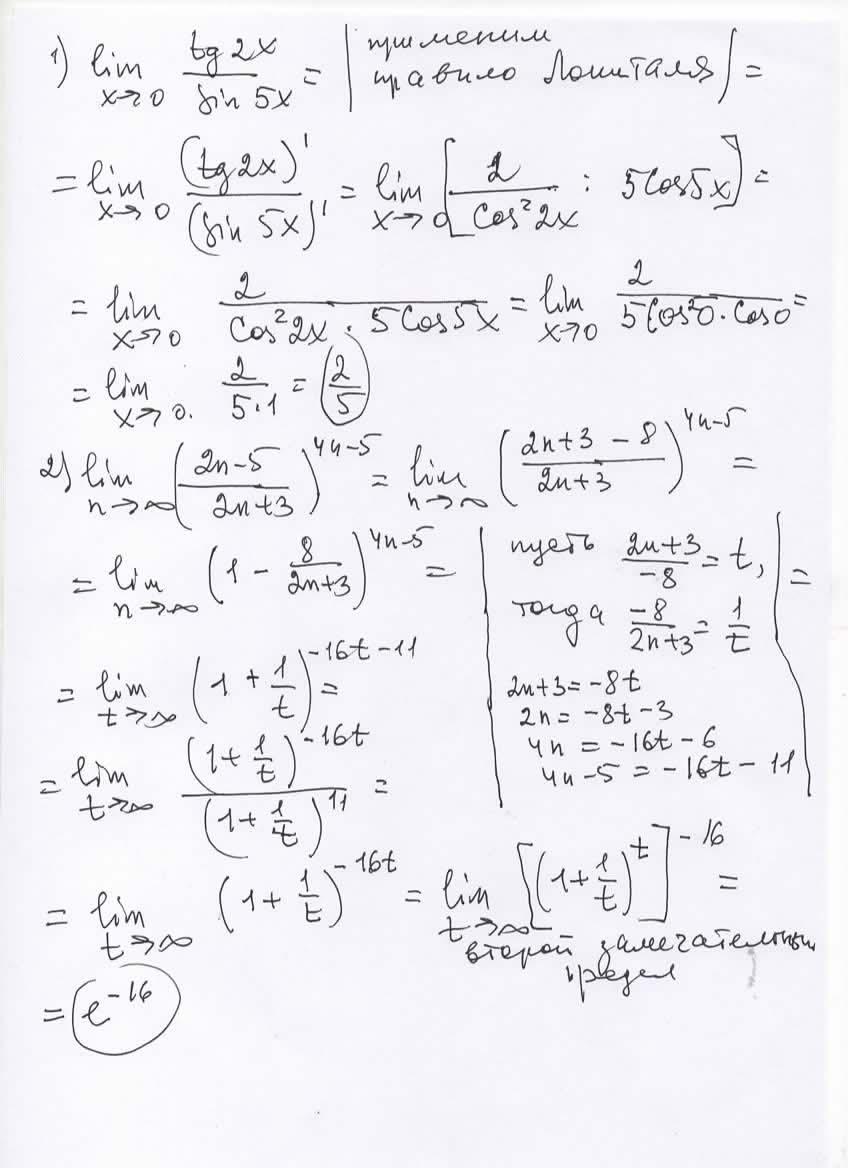 1) lim x→0 tg2x / sin 5x = | применим
правило Лопиталя | =
= lim x→0 (tg2x)' / (sin 5x)' = lim x→0 [ 2 / cos²2x : 5cos5x ] =
= lim x→0 2 / cos²2x · 5cos5x = lim x→0 2 / 5cos²0 · cos0 =
= lim x→0. 2 / 5·1 = 2/5
2) lim n→∞ (2n-5 / 2n+3)^4n-5 = lim n→∞ (2n+3-8 / 2n+3)^4n-5 =
= lim n→∞ (1 - 8 / 2n+3)^4n-5 = | пусть 2n+3 / -8 = t,
тогда -8 / 2n+3 = 1/t
2n+3 = -8t
2n = -8t-3
4n = -16t-6
4n-5 = -16t-11 | =
= lim t→∞ (1 + 1/t)^-16t-11 =
= lim t→∞ (1 + 1/t)^-16t / (1 + 1/t)^11 =
= lim t→∞ (1 + 1/t)^-16t = lim t→∞ [(1 + 1/t)^t]^-16 =
второй замечательный
предел
= e^-16